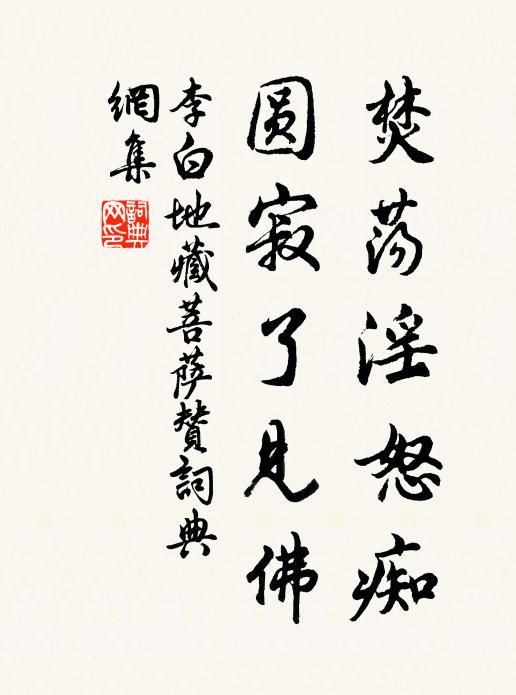 焚荡淫怒痴
圆寂了見佛
李白地藏菩萨赞詞典
網集
詞典网印